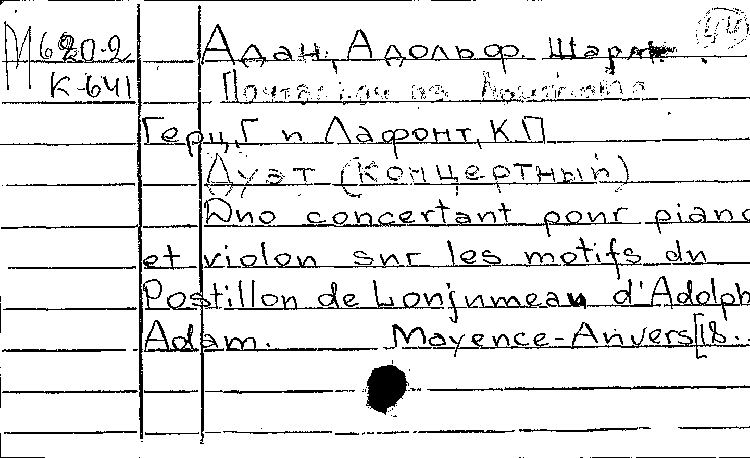 М620-2 Адан, Адольф Шарль 44
К-641 Почтальон из Лонжюмо
Герц, Г и Лафонт, К.П
Дуэт (концертный)
Duo concertant pour piano
et violon sur les motifs du
Postillon de Lonjumeau d'Adolph
Adam. Mayence-Anvers [18..